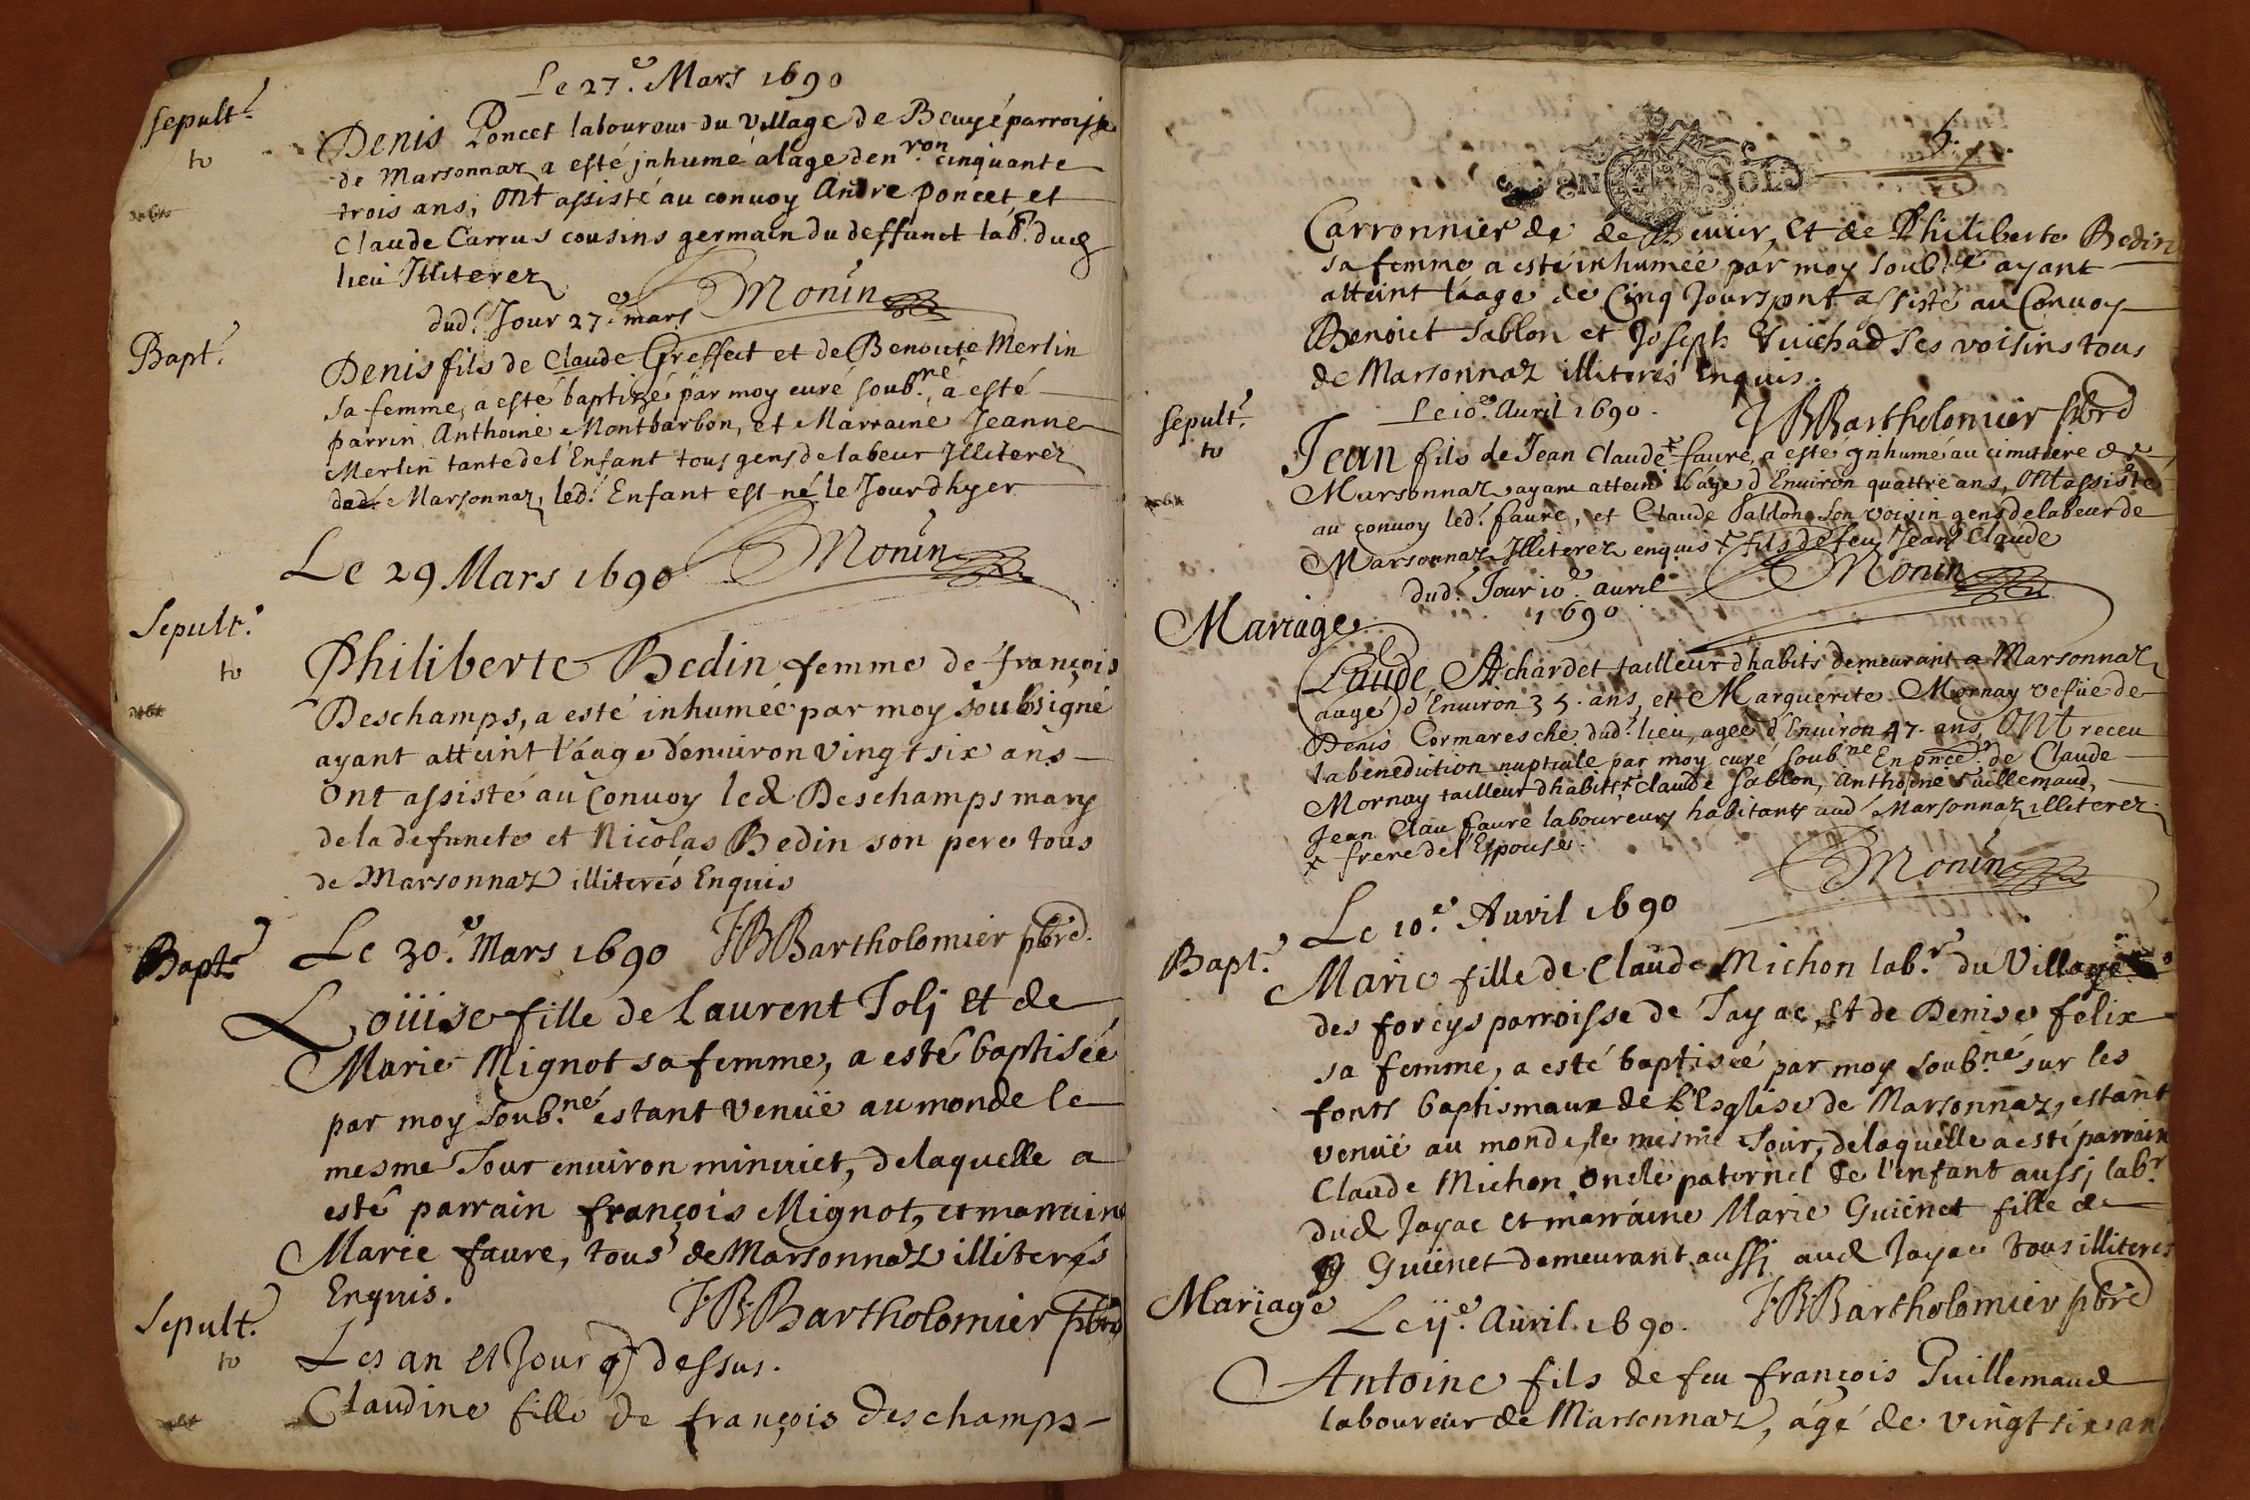 Le 27.e Mars 1690
Sepult.re
to
Denis Poncet laboureur du village de Beuyé parroisse
de Marsonnaz a esté jnhumé a lage denv.ron cinquante
trois ans; Ont assisté au convoy Andre Poncet et
Claude Carrus cousins germain du deffunct lab.r dud
lieu Illiterez
Monin
dud.t Jour 27.e mars
Bapt.
Denis fils de Claude Greffect et de Benoite Merlin
sa femme, a esté baptizé par moy curé soub.né, a esté
parrin Anthoine Montbarbon, et Marraine Jeanne
Merlin tante del Enfant tous gens de labeur Illiterez
dud. Marsonnaz, led.t Enfant est né le Jourdhyer
Monin
Le 29 Mars 1690
Sepult.
to
Philiberte Bedin femme de françois
Deschamps, a esté inhumée par moy soubsigné
ayant atteint l'áage denuiron vingt six ans
Ont assisté au Convoy led Deschamps mary
de la defuncte et Nicolas Bedin son pere tous
de Marsonnaz illiterés Enquis
Bapt.
Le 30.e Mars 1690 JBBartholomier pbre
Loüise fille de Laurent Jolj Et de
Marie Mignot sa femme, a esté baptisée
par moy soub.né estant venüe au monde le
mesme Jour enuiron minuict, de laquelle a
esté parrain françois Mignot, et marraine
Marie faure, tous de Marsonnaz illiterés
Enquis.
JBBartholomier pbre
Sepult.
to
Les an et Jour dessus.
Claudine fille de françois Deschamps
5.
SOLS
Carronnier de de et de Philiberte Bedin
sa femme a esté inhumée par moy soub.né ayant
atteint láage de Cinq Jours ont assisté au Convoy
Benoict Sablon et Joseph Vuichad ses voisins tous
de Marsonnaz illiterés Enquis.
JBBartholomier pbre
Sepult.
to
Le 10.e Auril 1690.
Jean fils de Jean Claude + faure, a esté jnhumé au cimitiere de
Marsonnaz ayant atteint l'áge d'Enuiron quattre ans, Ont assisté
au convoy led.t faure, et Claude Sablon son voisin gens de labeur de
Marsonnaz Illiterez enquis + fils de feu Jean Claude
Monin
dud.t Jour 10.e auril
1690
Mariage
Claude Achardet tailleur dhabits demeurant a Marsonnaz
aagé d'Enuiron 35. ans, et Marguerite Mornay vefue de
Denis Cormaresche dud.t lieu, agée d'Enuiron 47. ans, Ont receu
la benediction nuptiale par moy curé soub.né En pnce de Claude
Mornay tailleur dhabits + claude Sablon, Anthoine Vuillemaud,
Jean Clau faure laboureurs habitants aud Marsonnaz illiterez
+ frere del Espouse.
Monin
Le 10.e Auril 1690
Bapt.
Marie fille de Claude Michon lab.r du Village
des foreys parroisse de Jayac, Et de Denise felix
sa femme, a esté baptisée par moy soub.né sur les
fonts baptismaux de l'Esglise de Marsonnaz, estant
venüe au monde le mesme Jour, de laquelle a esté parrain
Claude Michon Oncle paternel de l'enfant aussj lab.r
dud Jayac et marraine Marie Guienet fille de
Guienet demeurant aussj aud Jayac tous illiterés
JBBartholomier pbre
Mariage
Le ij.e Auril 1690.
Antoine fils de feu françois Vuillemaud
laboureur de Marsonnaz, ágé de vingt six an